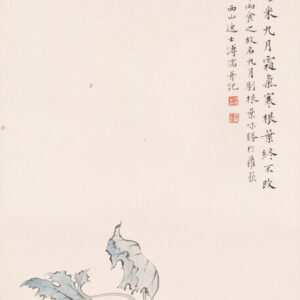 來九月霜氣寒根葉終不改
而食之故名九月割根葉味勝於
西山逸士溥儒并記